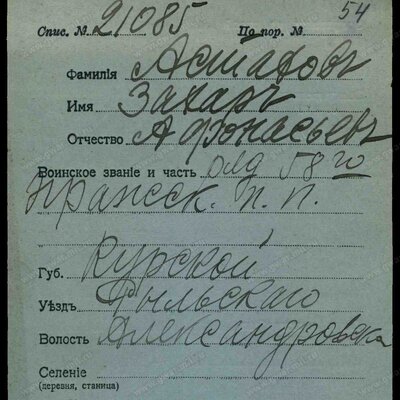 54
Спис. № 21085 По пор. №
Фамилія Астаховъ
Имя Захаръ
Отчество Афонасьевъ
Воинское званіе и часть ряд 58 го
Пражск. п. п.
Губ. Курской
Уѣздъ Рыльскаго
Волость Александровска
Селеніе
(деревня, станица)